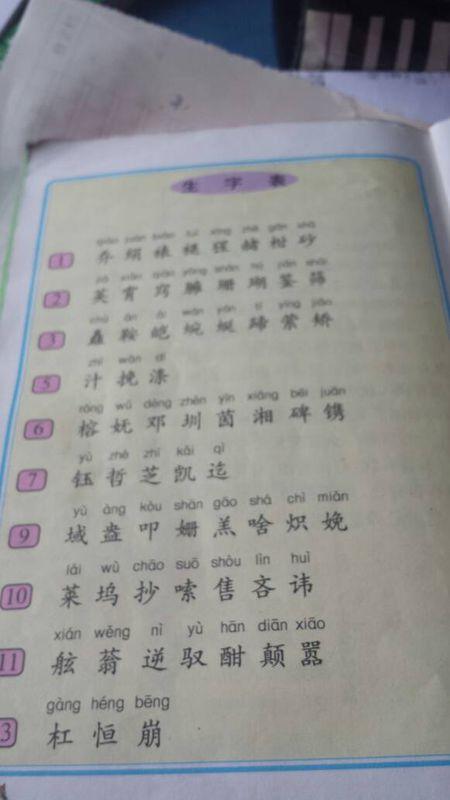 生字表
1 乔 绢 裱 褪 猩 赭 柑 砂
2 宵 窍 臃 珊 瑚 茎 筛
3 矗 鞍 皑 蜿 蜒 蹄 萦
zhī wǎn dí
5 汁 挽 涤
róng wǔ dèng zhèn yīn xiāng bēi juān
6 榕 妩 邓 圳 茵 湘 碑 镌
yù zhé zhī kǎi qì
7 钰 哲 芝 凯 迄
yù àng kòu shān gāo shá chì miǎn
9 域 盎 叩 姗 羔 啥 炽 娩
lái wù chāo suō shòu lìn huì
10 莱 坞 抄 嗦 售 吝 讳
xián wěng nì yù hān diān xiāo
11 舷 蓊 逆 驭 酣 颠 嚣
gàng héng bēng
3 杠 恒 崩